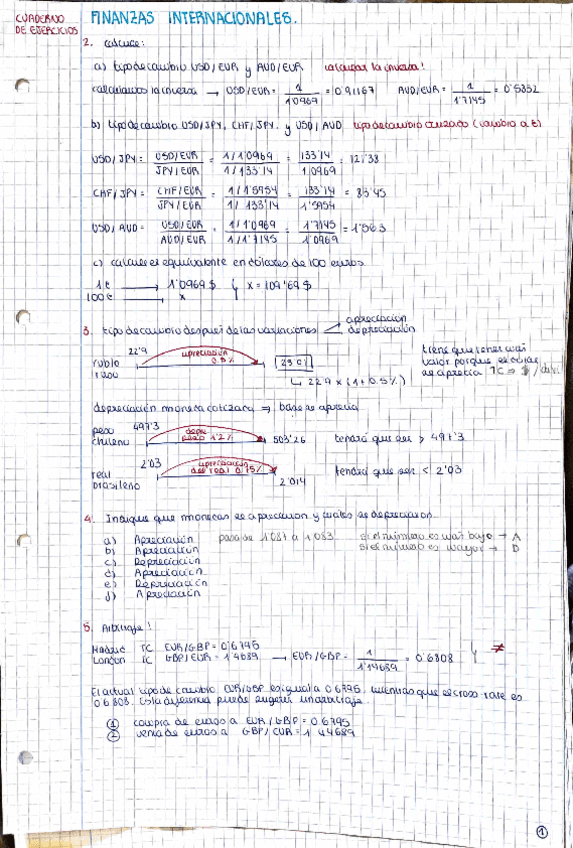 CUADERNO
DE EJERCICIOS
FINANZAS INTERNACIONALES.
2. calcule:
a) tipo de cambio USD/EUR y AUD/EUR calcular la inversa!
calculamos la inversa → USD/EUR = 1 / 1'0969 = 0'91167 AUD/EUR = 1 / 1'7145 = 0'5832
b) tipo de cambio USD/JPY, CHF/JPY y USD/AUD tipo de cambio cruzado (cambio a €)
USD/JPY = USD/EUR / JPY/EUR = 1/1'0969 / 1/133'14 = 133'14 / 1'0969 = 121'38
CHF/JPY = CHF/EUR / JPY/EUR = 1/1'5954 / 1/133'14 = 133'14 / 1'5954 = 83'45
USD/AUD = USD/EUR / AUD/EUR = 1/1'0969 / 1/1'7145 = 1'7145 / 1'0969 = 1'563
c) calcule el equivalente en dólares de 100 euros
1€ → 1'0969 $
100€ → x } x = 109'69 $
3. tipo de cambio después de las variaciones
apreciación
depreciación
rublo
ruso
22'9
apreciación
0'5%
23'01
↳ 22'9 x (1+0'5%)
tiene que tener más
valor porque el dólar
se aprecia
depreciación moneda cotizada ⇒ base se aprecia
peso
chileno
497'3
depre
peso 1'2%
503'26
tendrá que ser > 497'3
real
brasileño
2'03
apreciación
del real 0'75%
2'014
tendrá que ser < 2'03
4. Indique que monedas se apreciaron y cuales se depreciaron
a) Apreciación pasa de 1'081 a 1'083 si el número es más bajo → A
b) Apreciación si el número es mayor → D
c) Depreciación
d) Apreciación
e) Depreciación
f) Apreciación
5. Arbitraje!
Madrid TC EUR/GBP = 0'6795
London TC GBP/EUR = 1'4689 → EUR/GBP = 1 / 1'4689 = 0'6808 } ≠
El actual tipo de cambio EUR/GBP es igual a 0'6795, mientras que el cross-rate es
0'6808. Esta diferencia puede sugerir un arbitraje.
① compra de euros a EUR/GBP = 0'6795
② venta de euros a GBP/EUR = 1'4689
①